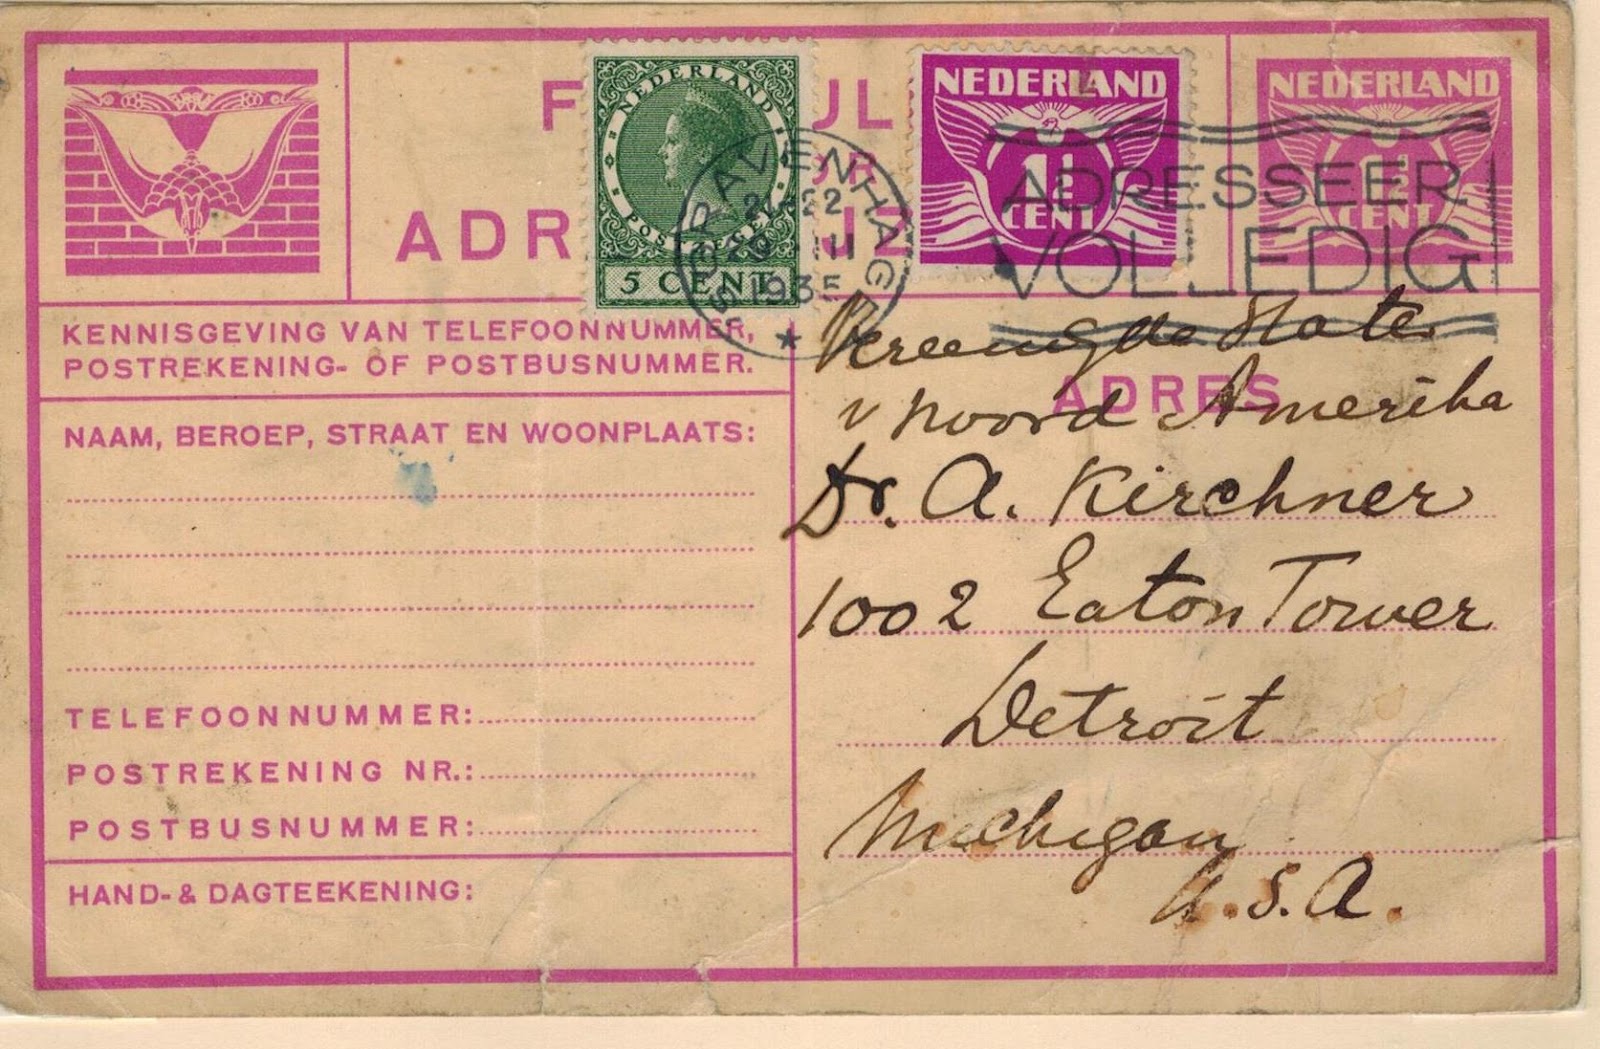 F UL
OR
ADR JZ
NEDERLAND
POSTZEGEL
5 CENT
NEDERLAND
1½
CENT
NEDERLAND
1½
CENT
'S GRAVENHAGE
21-22
III
1935
ADRESSEER
VOLLEDIG
KENNISGEVING VAN TELEFOONNUMMER,
POSTREKENING- OF POSTBUSNUMMER.
NAAM, BEROEP, STRAAT EN WOONPLAATS:
TELEFOONNUMMER:
POSTREKENING NR.:
POSTBUSNUMMER:
HAND- & DAGTEEKENING:
Vereenigde State
ADRES
v Noord Amerika
Dr. A. Kirchner
1002 Eaton Tower
Detroit
Michigan
U.S.A.